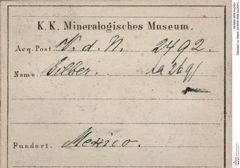 K. K. Mineralogisches Museum.
Acq. Post K. d. N. 2492.
Name. Silber.
Fundort Mexico.